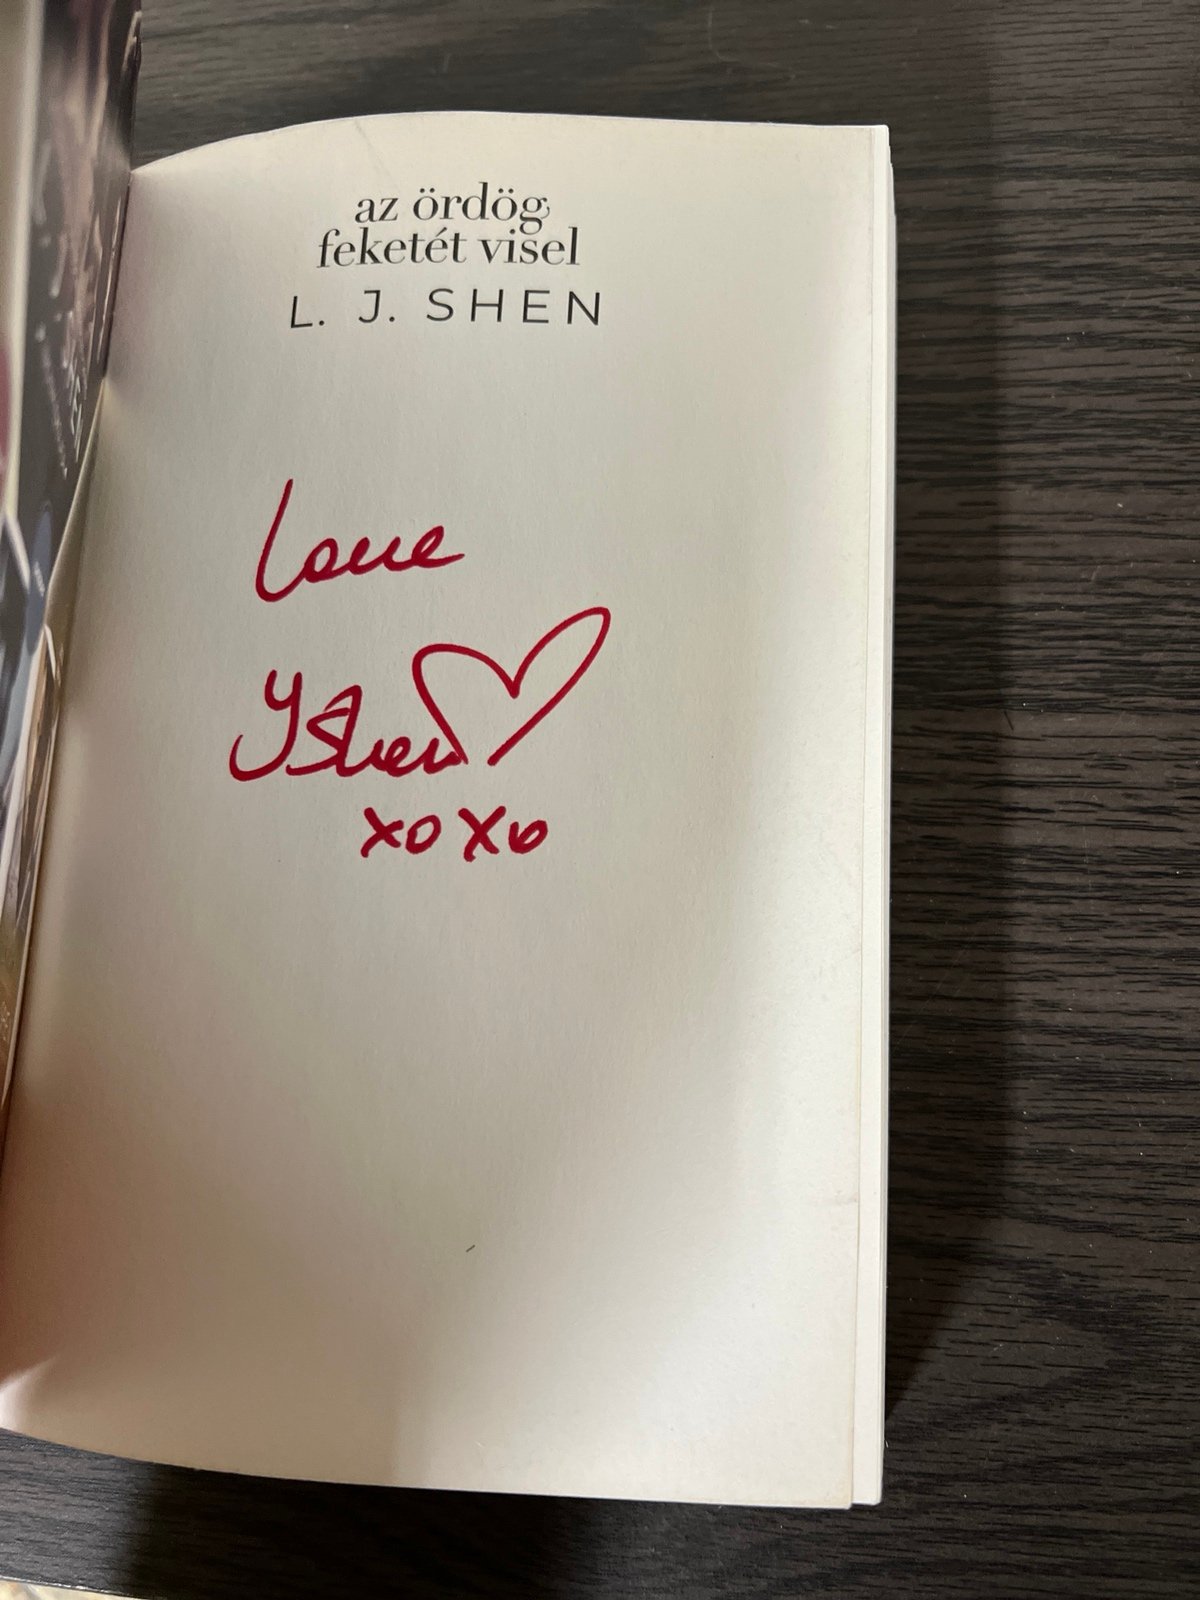 az ördög
feketét visel
L. J. SHEN
Love
LJShen
xoxo